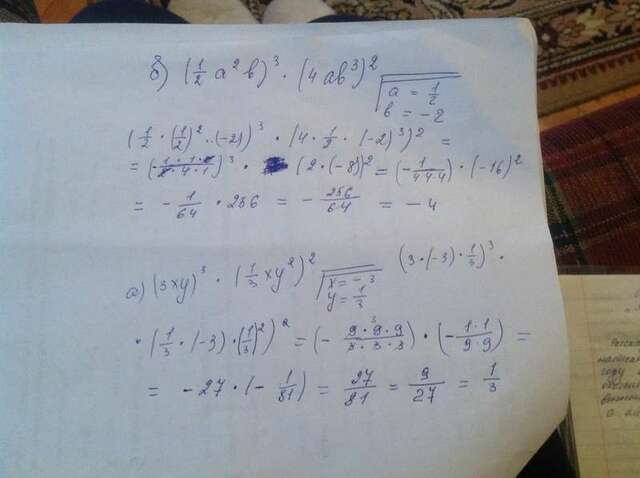 б) (1/2 a²b)³ · (4ab³)²
a = 1/2
b = -2
(1/2 · (1/2)² · (-2))³ · (4 · 1/2 · (-2)³)² =
= · (2 · (-8))² = (- 1/4·4·4) · (-16)²
= - 1/64 · 256 = - 256/64 = - 4
а) (3xy)³ · (1/3 xy²)²
x = - 3
y = 1/3
(3 · (-3) · 1/3)³ ·
· (1/3 · (-3) · (1/3)²)² = (- 9·9·9/3·3·3) · (- 1·1/9·9) =
= - 27 · (- 1/81) = 27/81 = 9/27 = 1/3
году